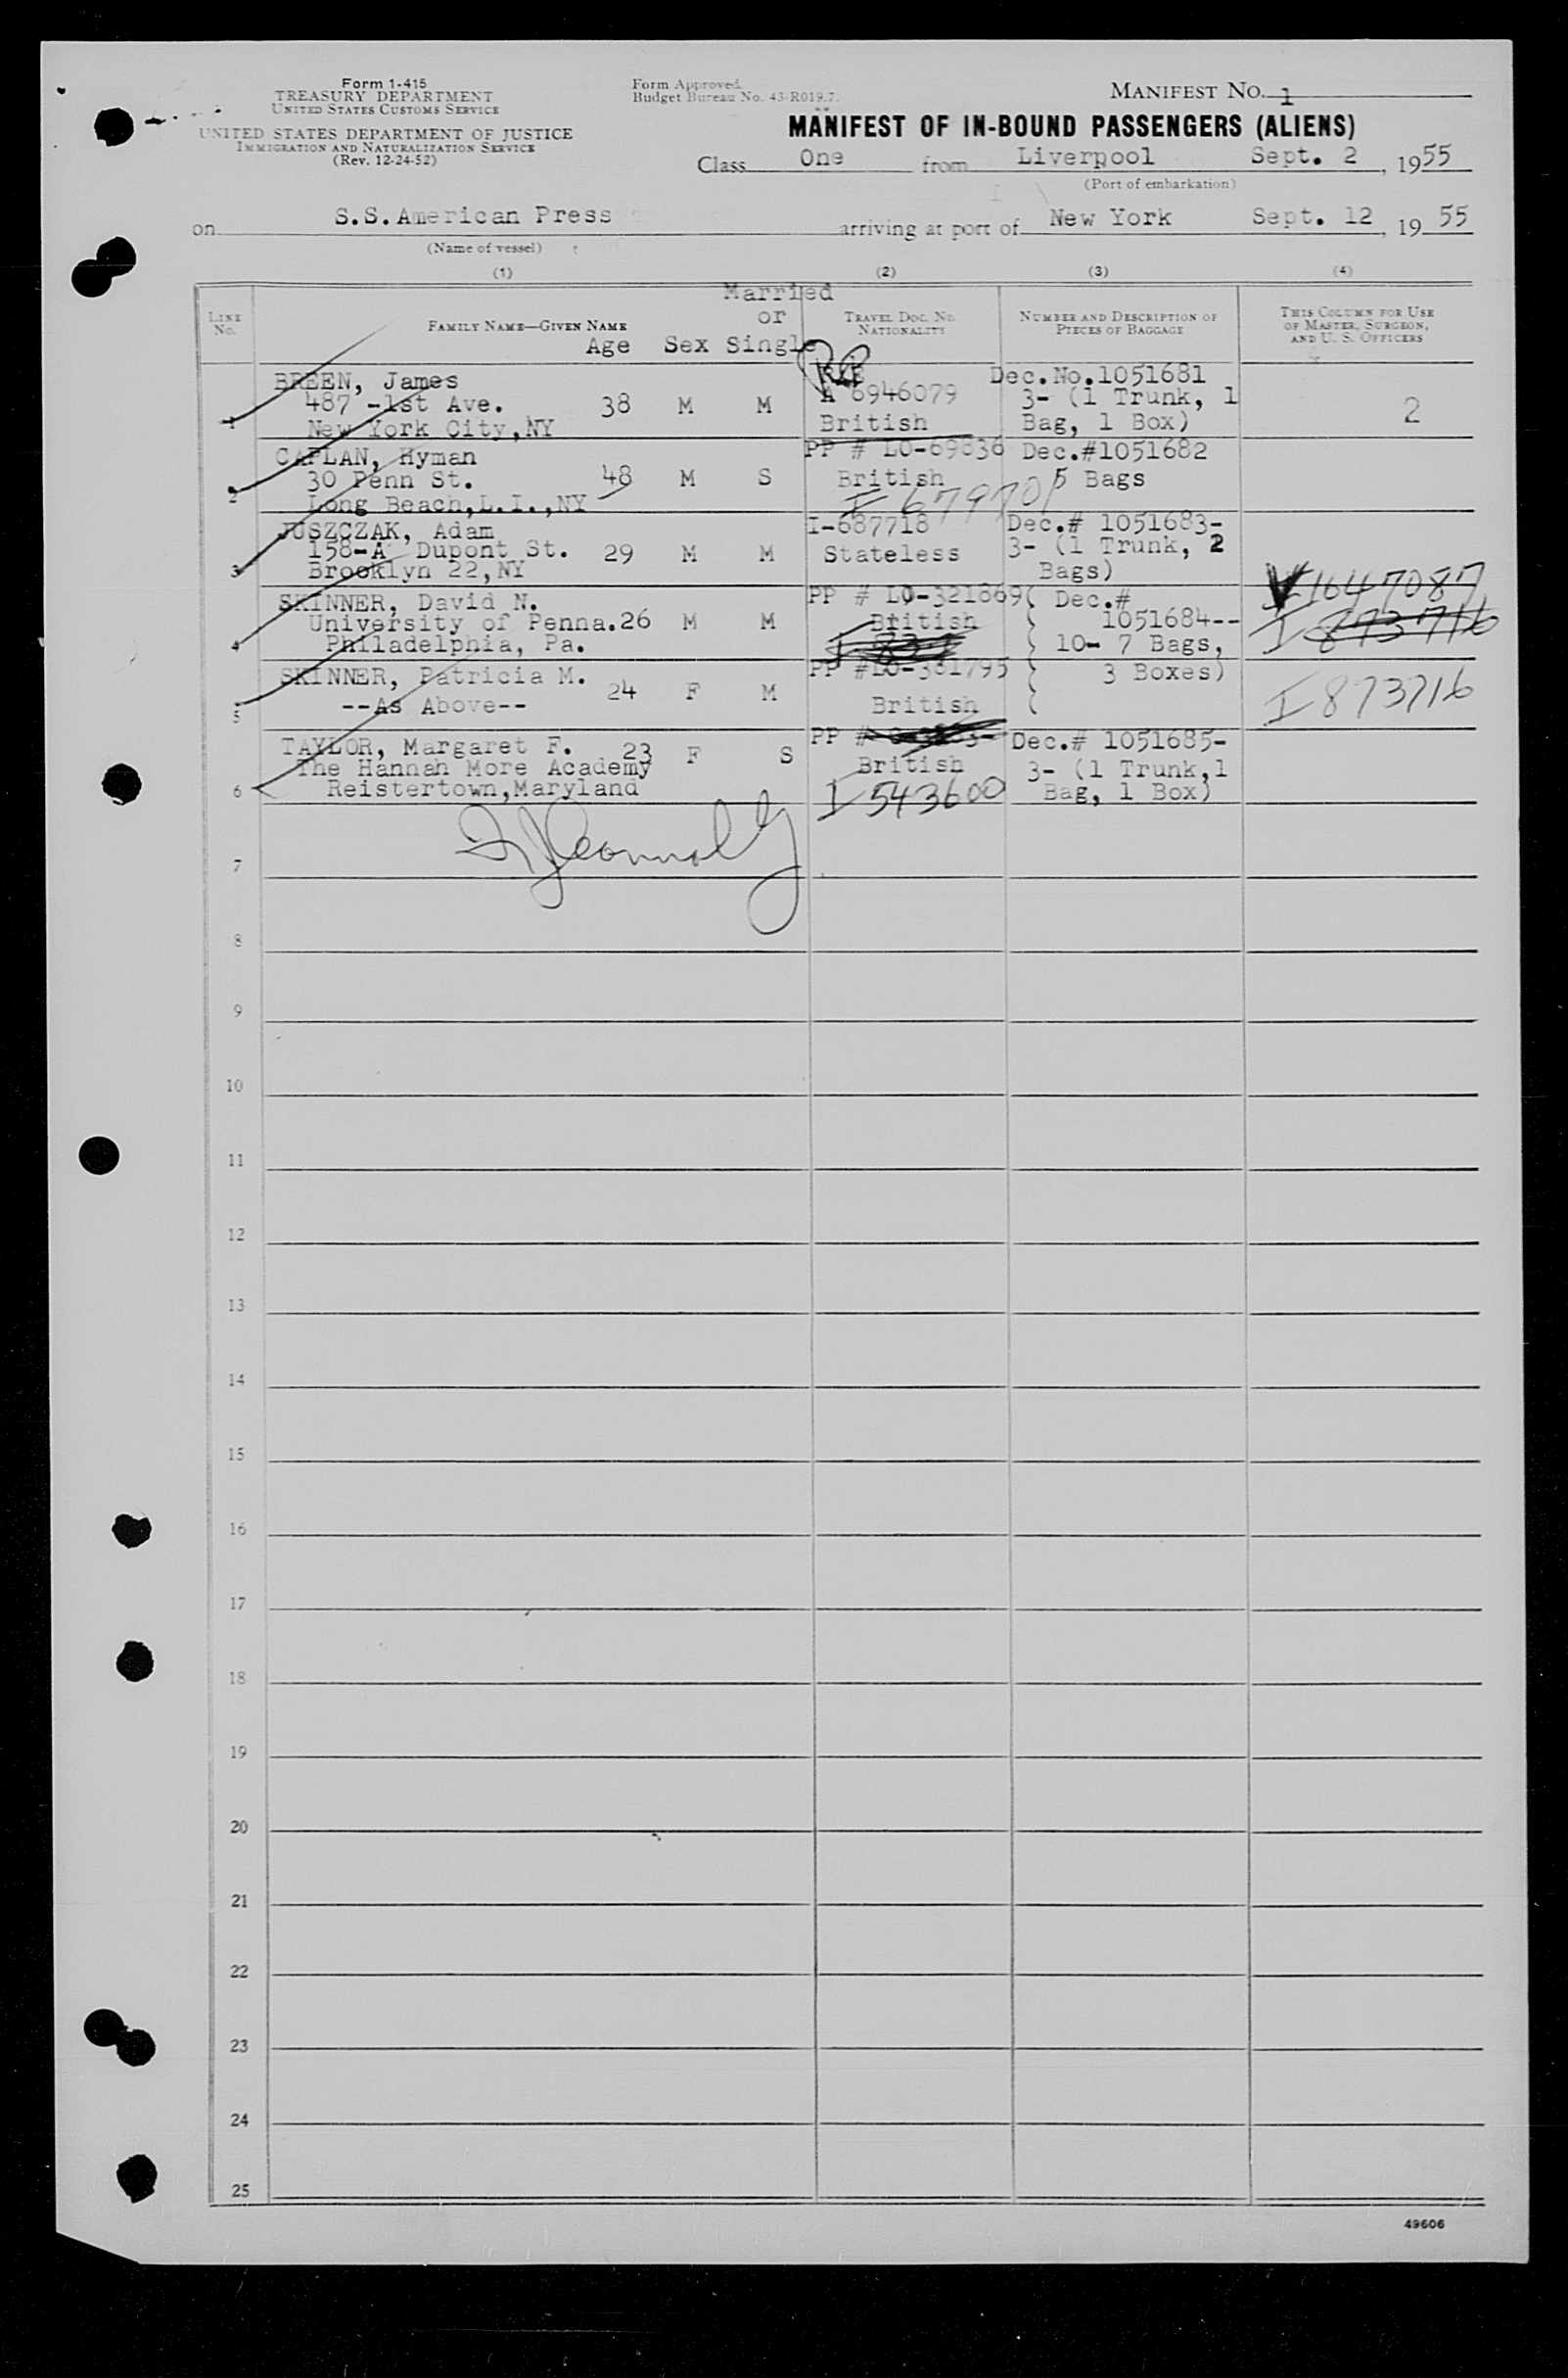 Form I-415
TREASURY DEPARTMENT
UNITED STATES CUSTOMS SERVICE
UNITED STATES DEPARTMENT OF JUSTICE
IMMIGRATION AND NATURALIZATION SERVICE
(Rev. 12-24-52)
Form Approved.
Budget Bureau No. 43-R019.7.
MANIFEST NO. 1
MANIFEST OF IN-BOUND PASSENGERS (ALIENS)
Class One from Liverpool Sept. 2, 1955
(Port of embarkation)
on S.S.American Press arriving at port of New York Sept. 12, 1955
(Name of vessel)
(1) (2) (3) (4)
LINE No.
FAMILY NAME—GIVEN NAME
Age Sex Married or Single
TRAVEL DOC. NO. NATIONALITY
NUMBER AND DESCRIPTION OF PIECES OF BAGGAGE
THIS COLUMN FOR USE OF MASTER, SURGEON, AND U. S. OFFICERS
1
BREEN, James
487 -1st Ave.
New York City,NY
38 M M
A 6946079
British
Dec.No.1051681
3- (1 Trunk, 1
Bag, 1 Box)
2
2
CAPLAN, Hyman
30 Penn St.
Long Beach,L.I.,NY
48 M S
PP # LO-69836
British
I 679701
Dec.#1051682
5 Bags
3
JUSZCZAK, Adam
158-A Dupont St.
Brooklyn 22,NY
29 M M
I-687718
Stateless
Dec.# 1051683-
3- (1 Trunk, 2
Bags)
4
SKINNER, David N.
University of Penna.
Philadelphia, Pa.
26 M M
PP # LO-321869
British
Dec.#
1051684--
10- 7 Bags,
3 Boxes)
I 1647087
I 873716
5
SKINNER, Patricia M.
--As Above--
24 F M
PP #LO-381795
British
I 873716
6
TAYLOR, Margaret F.
The Hannah More Academy
Reistertown,Maryland
23 F S
PP #
British
I 543600
Dec.# 1051685-
3- (1 Trunk,1
Bag, 1 Box)
7
8
9
10
11
12
13
14
15
16
17
18
19
20
21
22
23
24
25
49606